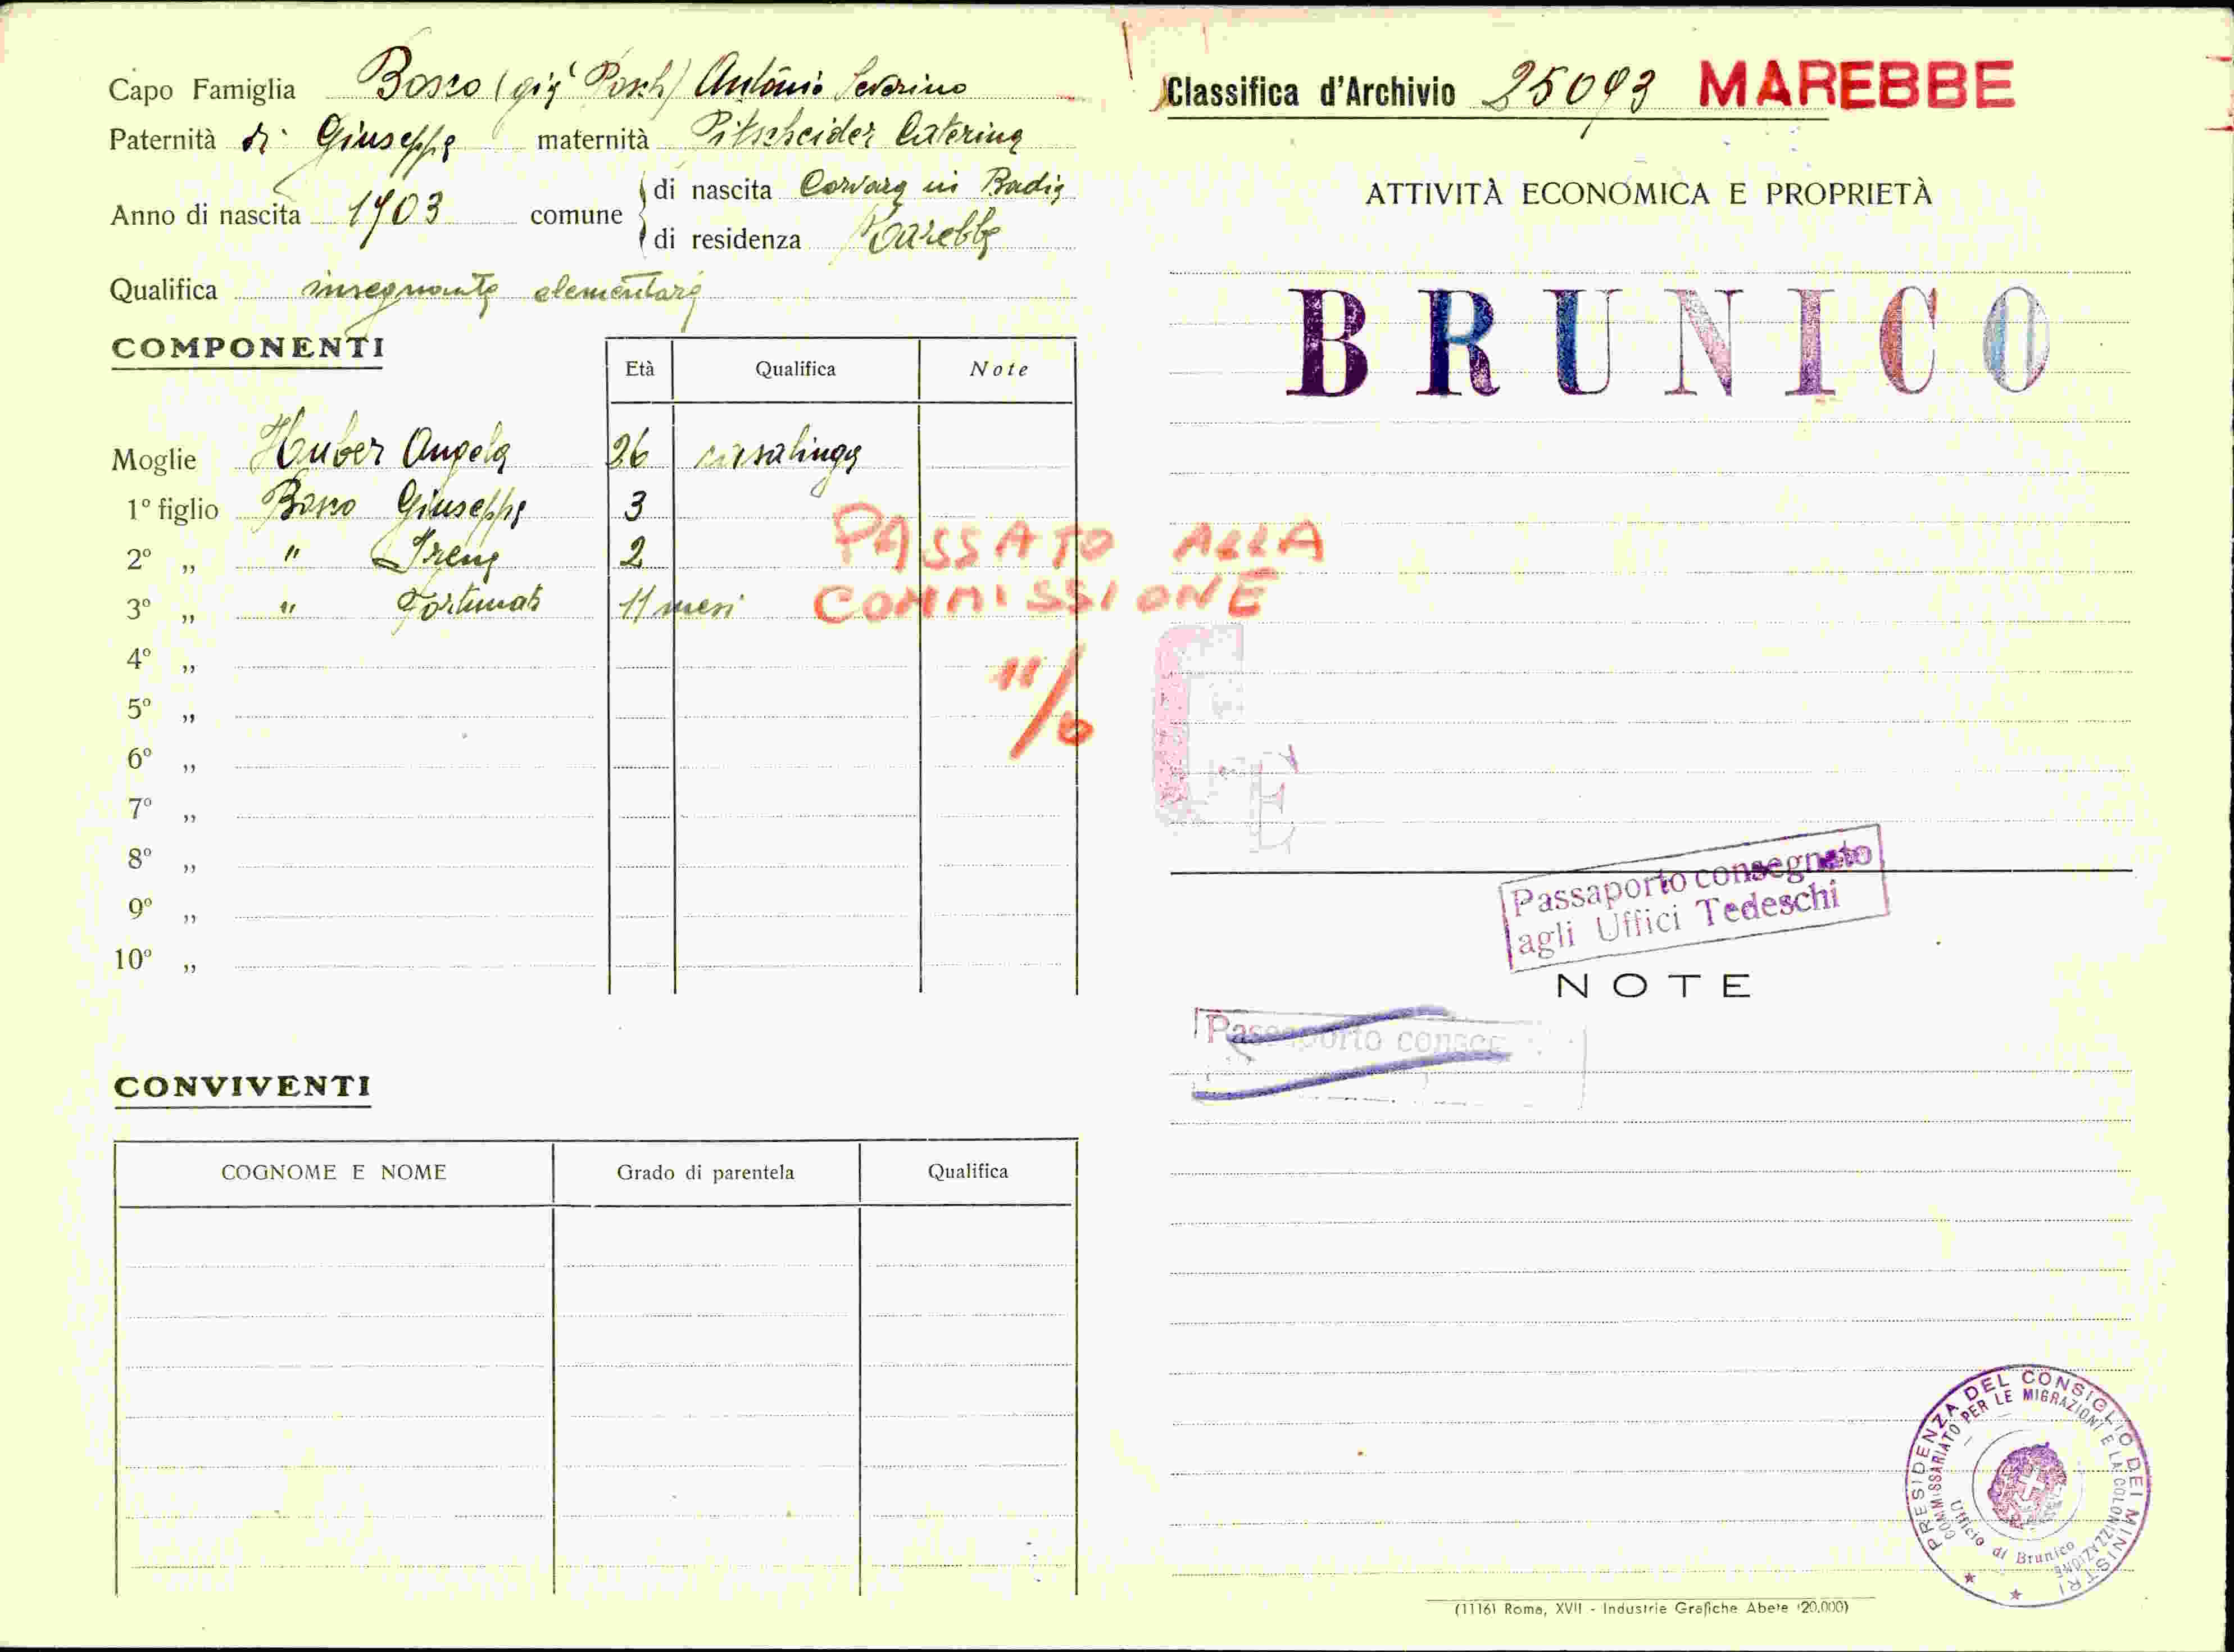 Capo Famiglia Bosco (già Posch) Antonio Severino
Paternità di Giuseppe maternità Pitscheider Caterina
Anno di nascita 1903 comune di nascita Corvara in Badia
di residenza Marebbe
Qualifica insegnante elementare
COMPONENTI
Età Qualifica Note
Moglie Huber Angela 36 casalinga
1º figlio Bosco Giuseppe 3
2º „ " Irene 2
3º „ " Fortunato 11 mesi
PASSATO ALLA
COMMISSIONE
4º „
5º „
6º „
7º „
8º „
9º „
10º „
CONVIVENTI
COGNOME E NOME Grado di parentela Qualifica
Classifica d'Archivio 25093 MAREBBE
ATTIVITÀ ECONOMICA E PROPRIETÀ
BRUNICO
Passaporto consegnato
agli Uffici Tedeschi
NOTE
Passaporto
PRESIDENZA DEL CONSIGLIO DEI MINISTRI
COMMISSARIATO PER LE MIGRAZIONI E LA COLONIZZAZIONE
Ufficio di Brunico
(1116) Roma, XVII - Industrie Grafiche Abete (20.000)